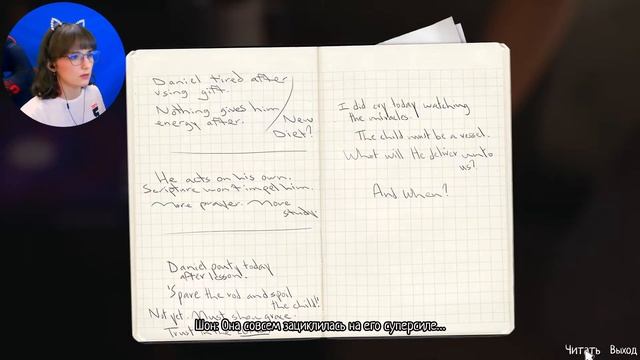 Daniel tired after
using gift.
Nothing gives him
energy after.
New
Diet?
He acts on his own.
Scripture won't impel him.
More prayer. More
study.
Daniel pouty today
after lesson.
"Spare the rod and spoil
the child."
Not yet. Must show grace.
Trust in the
I did cry today watching
the miracles.
The child must be a vessel.
What will He deliver unto
us?
And When?
Шон: Она совсем зациклилась на его суперсиле...
Читать Выход